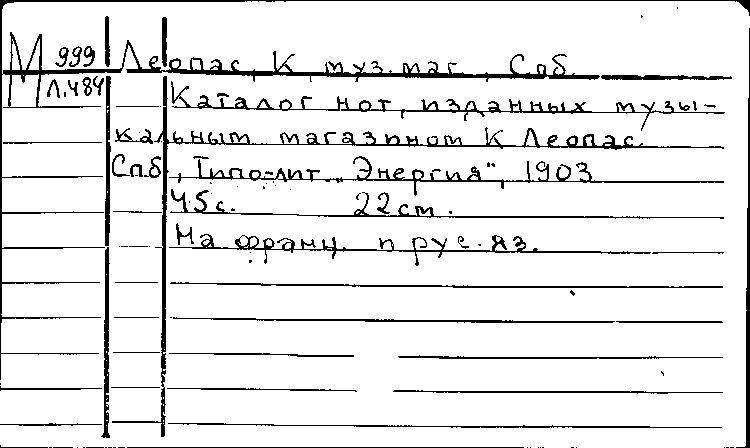 М 999 Леопас, К, муз. маг., Спб.
Л.484 Каталог нот, изданных музы-
кальным магазином К Леопас.
Спб, Типо-лит „Энергия", 1903
45 с. 22 см.
На франц. и рус. яз.